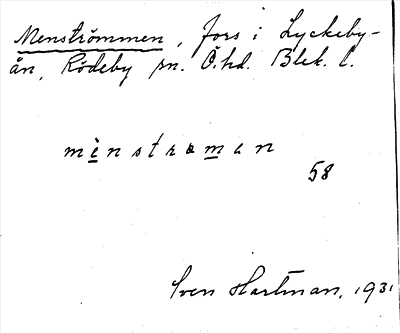 Menströmmen, fors i Lyckeby-
ån, Rödeby sn. Ö.hd. Blek. l.
mènstrəmən
58
Sven Hartman, 1931